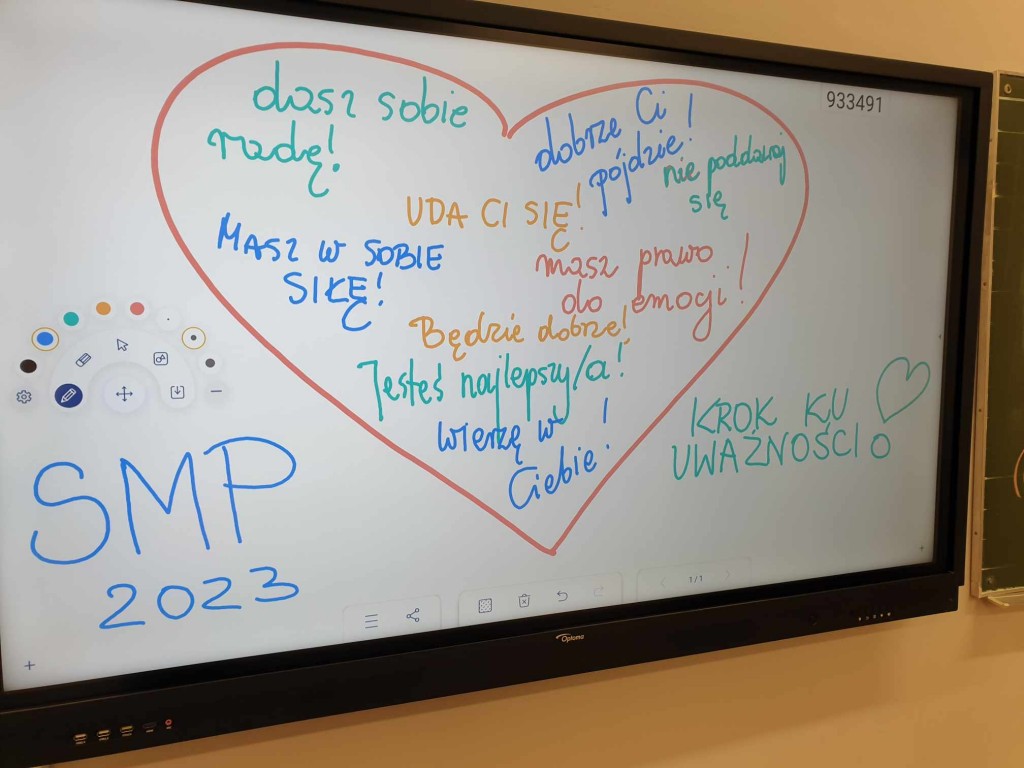 933491
dasz sobie
radę!
dobrze Ci
pójdzie!
nie poddawaj
się
UDA CI SIĘ!
MASZ W SOBIE
SIŁĘ!
masz prawo
do emocji!
Będzie dobrze!
Jesteś najlepszy/a!
wierzę w
Ciebie!
KROK KU
UWAŻNOŚCI
SMP
2023
1/1
Optoma